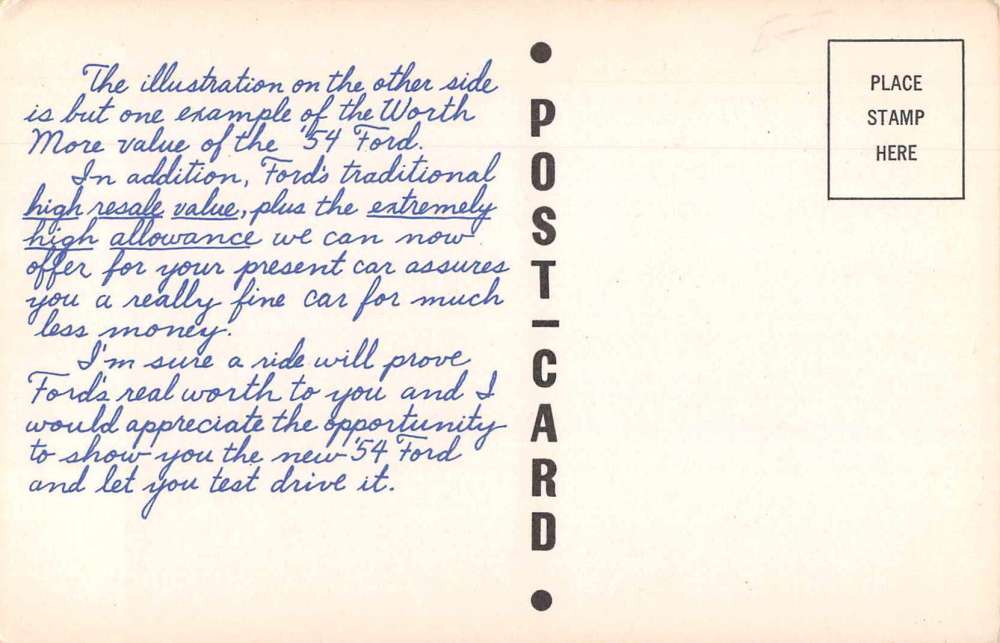 The illustration on the other side
is but one example of the Worth
More value of the '54 Ford.
In addition, Ford's traditional
high resale value, plus the extremely
high allowance we can now
offer for your present car assures
you a really fine car for much
less money.
I'm sure a ride will prove
Ford's real worth to you and I
would appreciate the opportunity
to show you the new '54 Ford
and let you test drive it.
POST-CARD
PLACE
STAMP
HERE